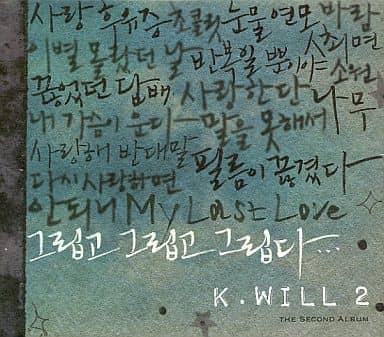 사랑 후유증 초콜릿 눈물 연모 바람
이별 몰랐던 날 반복일 뿐이야 최면
끊었던 담배 사랑한다 나무 소원
내 가슴이 운다 말을 못해서
사랑해 반대말 필름이 끊겼다
다시 사랑하면
안되니 My Last Love
그립고 그립고 그립다...
K.WILL 2
THE SECOND ALBUM